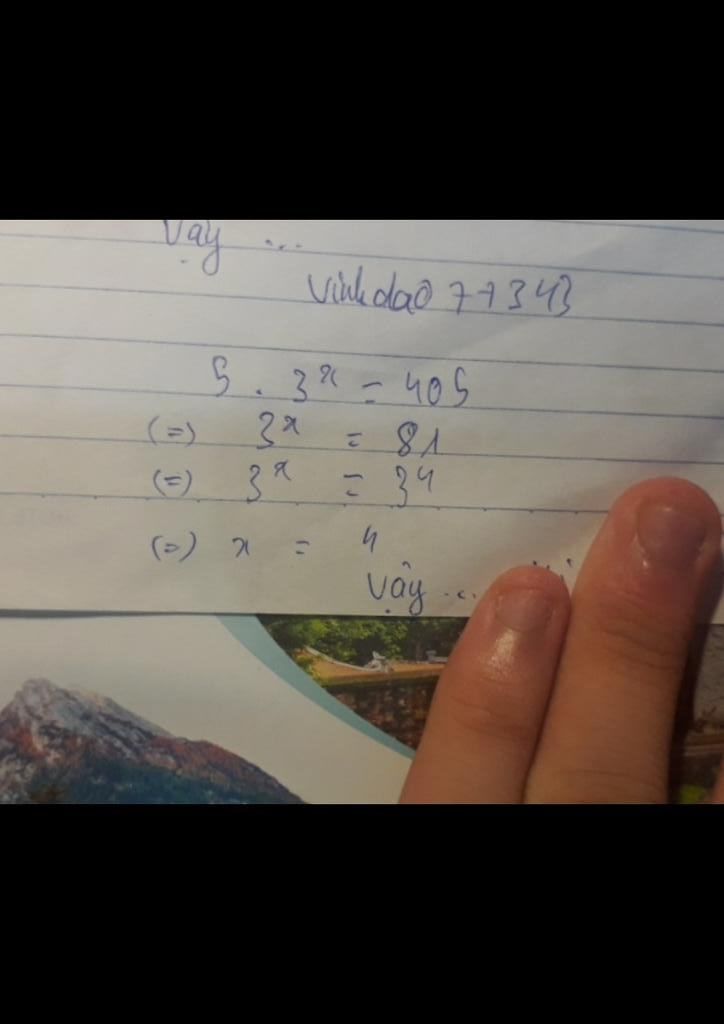 Vậy ...
vinhdao77343
5 . 3ˣ = 405
(=) 3ˣ = 81
(=) 3ˣ = 3⁴
(=) x = 4
Vậy ...